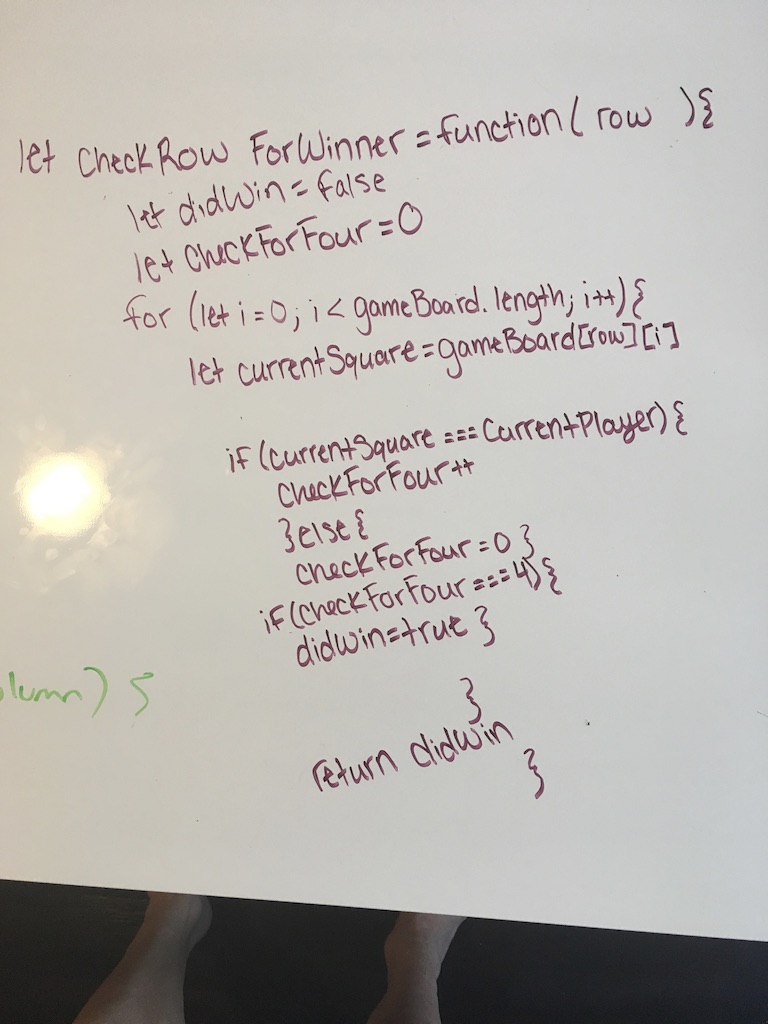 let checkRow ForWinner = function( row ){
let didWin = false
let checkForFour = 0
for (let i = 0; i < gameBoard.length; i++){
let currentSquare = gameBoard[row][i]
if (currentSquare === CurrentPlayer) {
checkForFour++
}else{
checkForFour = 0 }
if(checkForFour === 4){
didwin=true }
}
return didwin
}
lumn) {